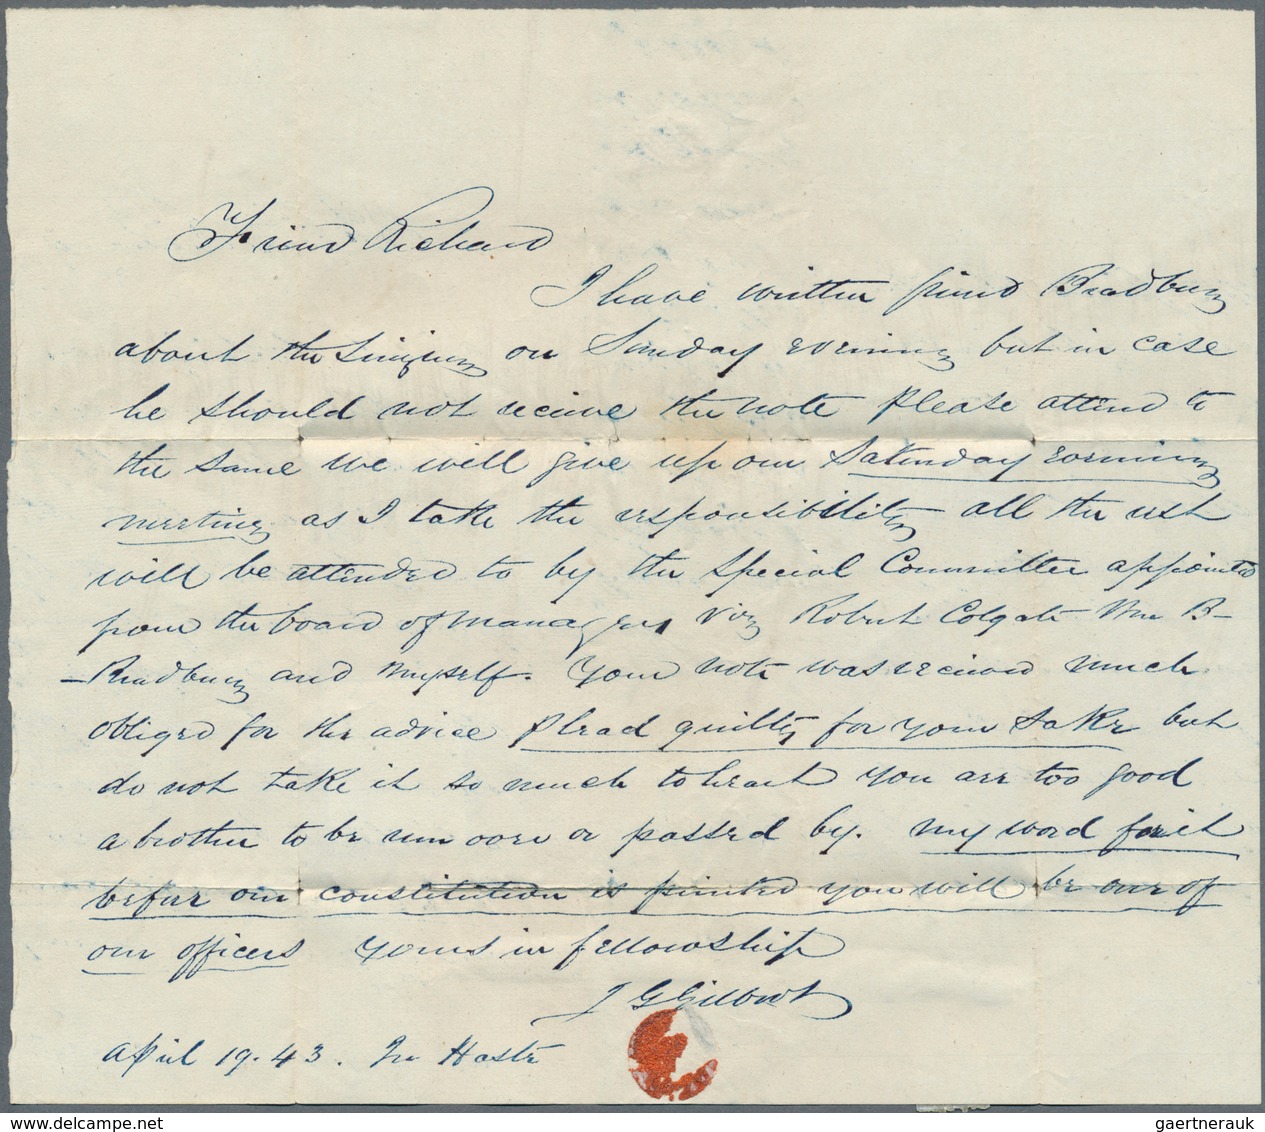 Friend Richard
I have written friend Bradbury
about the Singing on Sunday evening but in case
he should not recieve the note please attend to
the same we will give up our Saturday evening
meeting as I take the responsibility all the rest
will be attended to by the Special Committee appointed
from the board of managers viz Robert Colgate Wm B-
-Bradbury and myself. Your note was recieved much
obliged for the advice plead guilty for your sake but
do not take it so much to heart you are too good
a brother to be run over or passed by. my word for it
before our constitution is printed you will be one of
our officers yours in fellowship
J G Gilbert
April 19. 43. In Haste
gaertnerauk @ delcampe.net